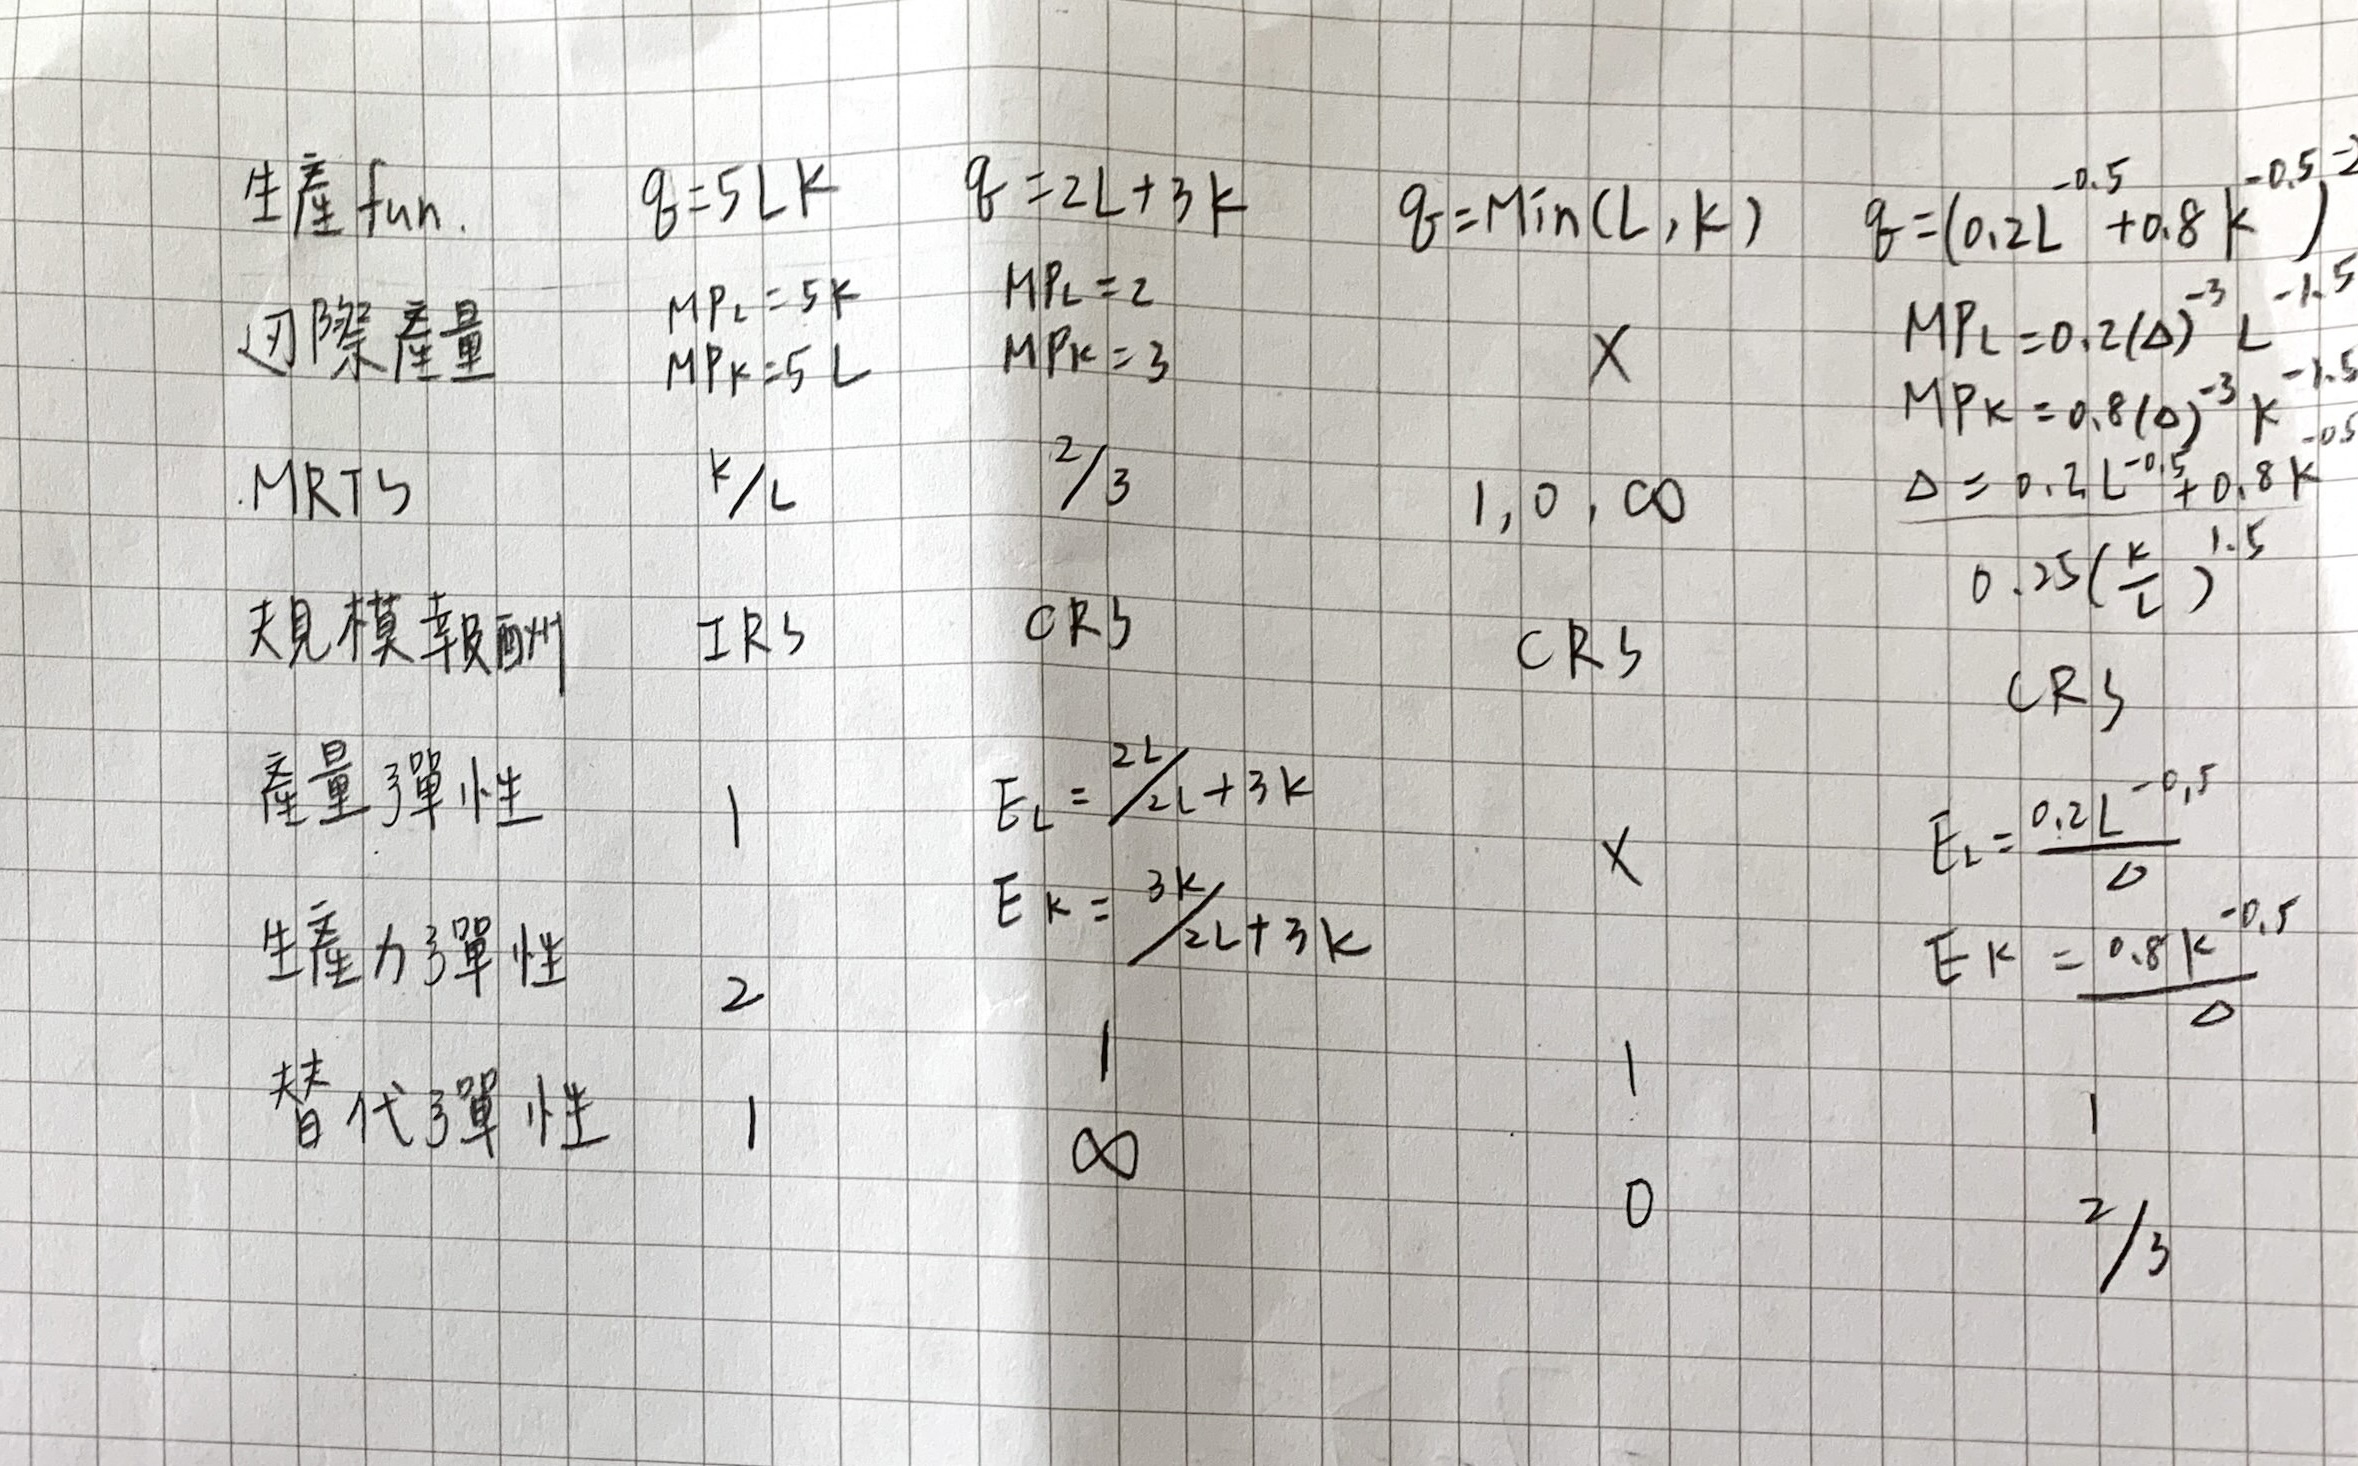 生產fun. q=5LK q=2L+3K q=Min(L,K) q=(0.2L^-0.5+0.8K^-0.5)^-2
边際產量 MPL=5K MPL=2 X MPL=0.2(Δ)^-3 L^-1.5
MPK=5L MPK=3 MPK=0.8(Δ)^-3 K^-1.5
Δ=0.2L^-0.5+0.8K^-0.5
MRTS K/L 2/3 1,0,∞ 0.25(K/L)^1.5
規模報酬 IRS CRS CRS CRS
產量彈性 1 EL=2L/2L+3K X EL=0.2L^-0.5/Δ
EK=3K/2L+3K EK=0.8K^-0.5/Δ
生產力彈性 2 1 1 1
替代彈性 1 ∞ 0 2/3